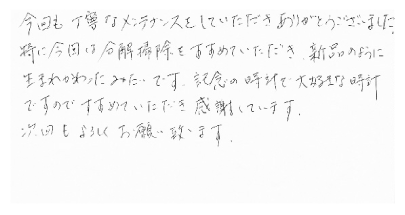 今回も丁寧なメンテナンスをしていただきありがとうございました
特に今回は分解掃除をすすめていただき、新品のように
生まれかわったみたいです。記念の時計で大好きな時計
ですのですすめていただき感謝しています。
次回もよろしくお願い致します。